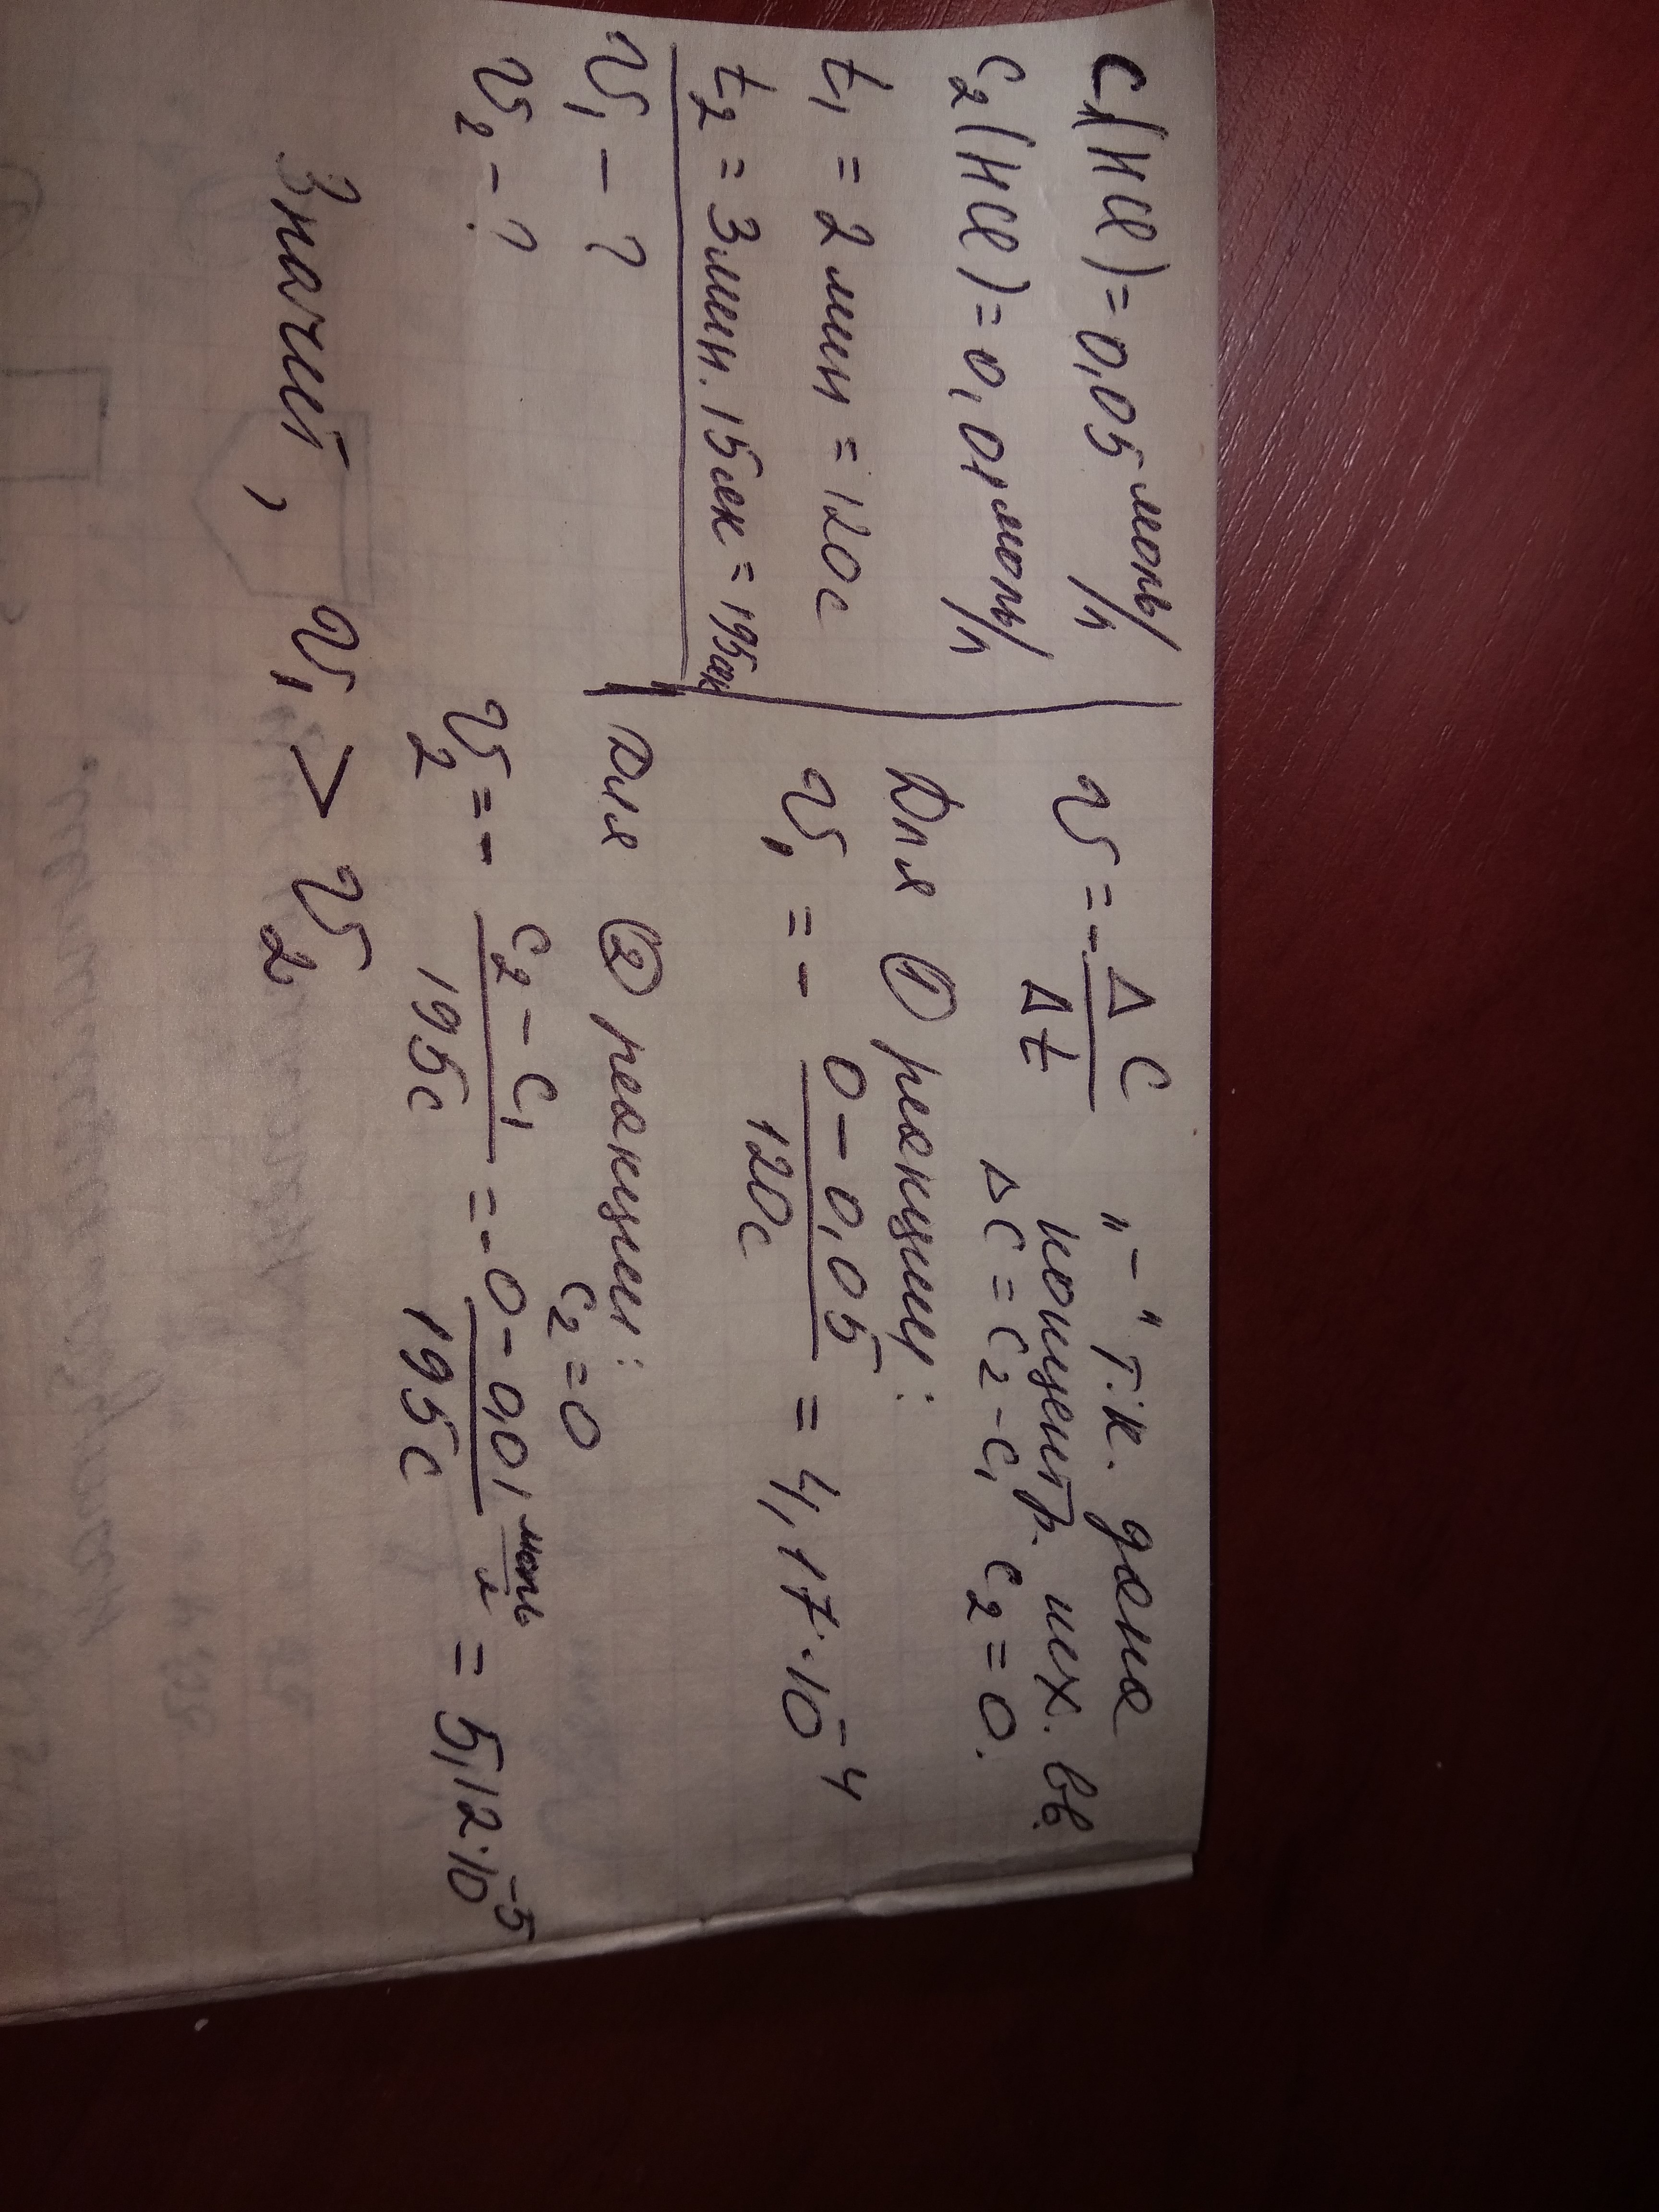 C₁(HCl) = 0,05 моль/л
C₂(HCl) = 0,01 моль/л
t₁ = 2 мин = 120с
t₂ = 3 мин. 15 сек = 195 сек
V₁ - ?
V₂ - ?
V = - ΔC/Δt „-" т.к. дана концентр. исх. вв.
ΔC = C₂ - C₁ C₂ = 0.
Для ① реакции:
V₁ = - (0 - 0,05)/120с = 4,17·10⁻⁴
Для ② реакции: C₂ = 0
V₂ = - (C₂ - C₁)/195с = - (0 - 0,01 моль/л)/195с = 5,12·10⁻⁵
Значит, V₁ > V₂